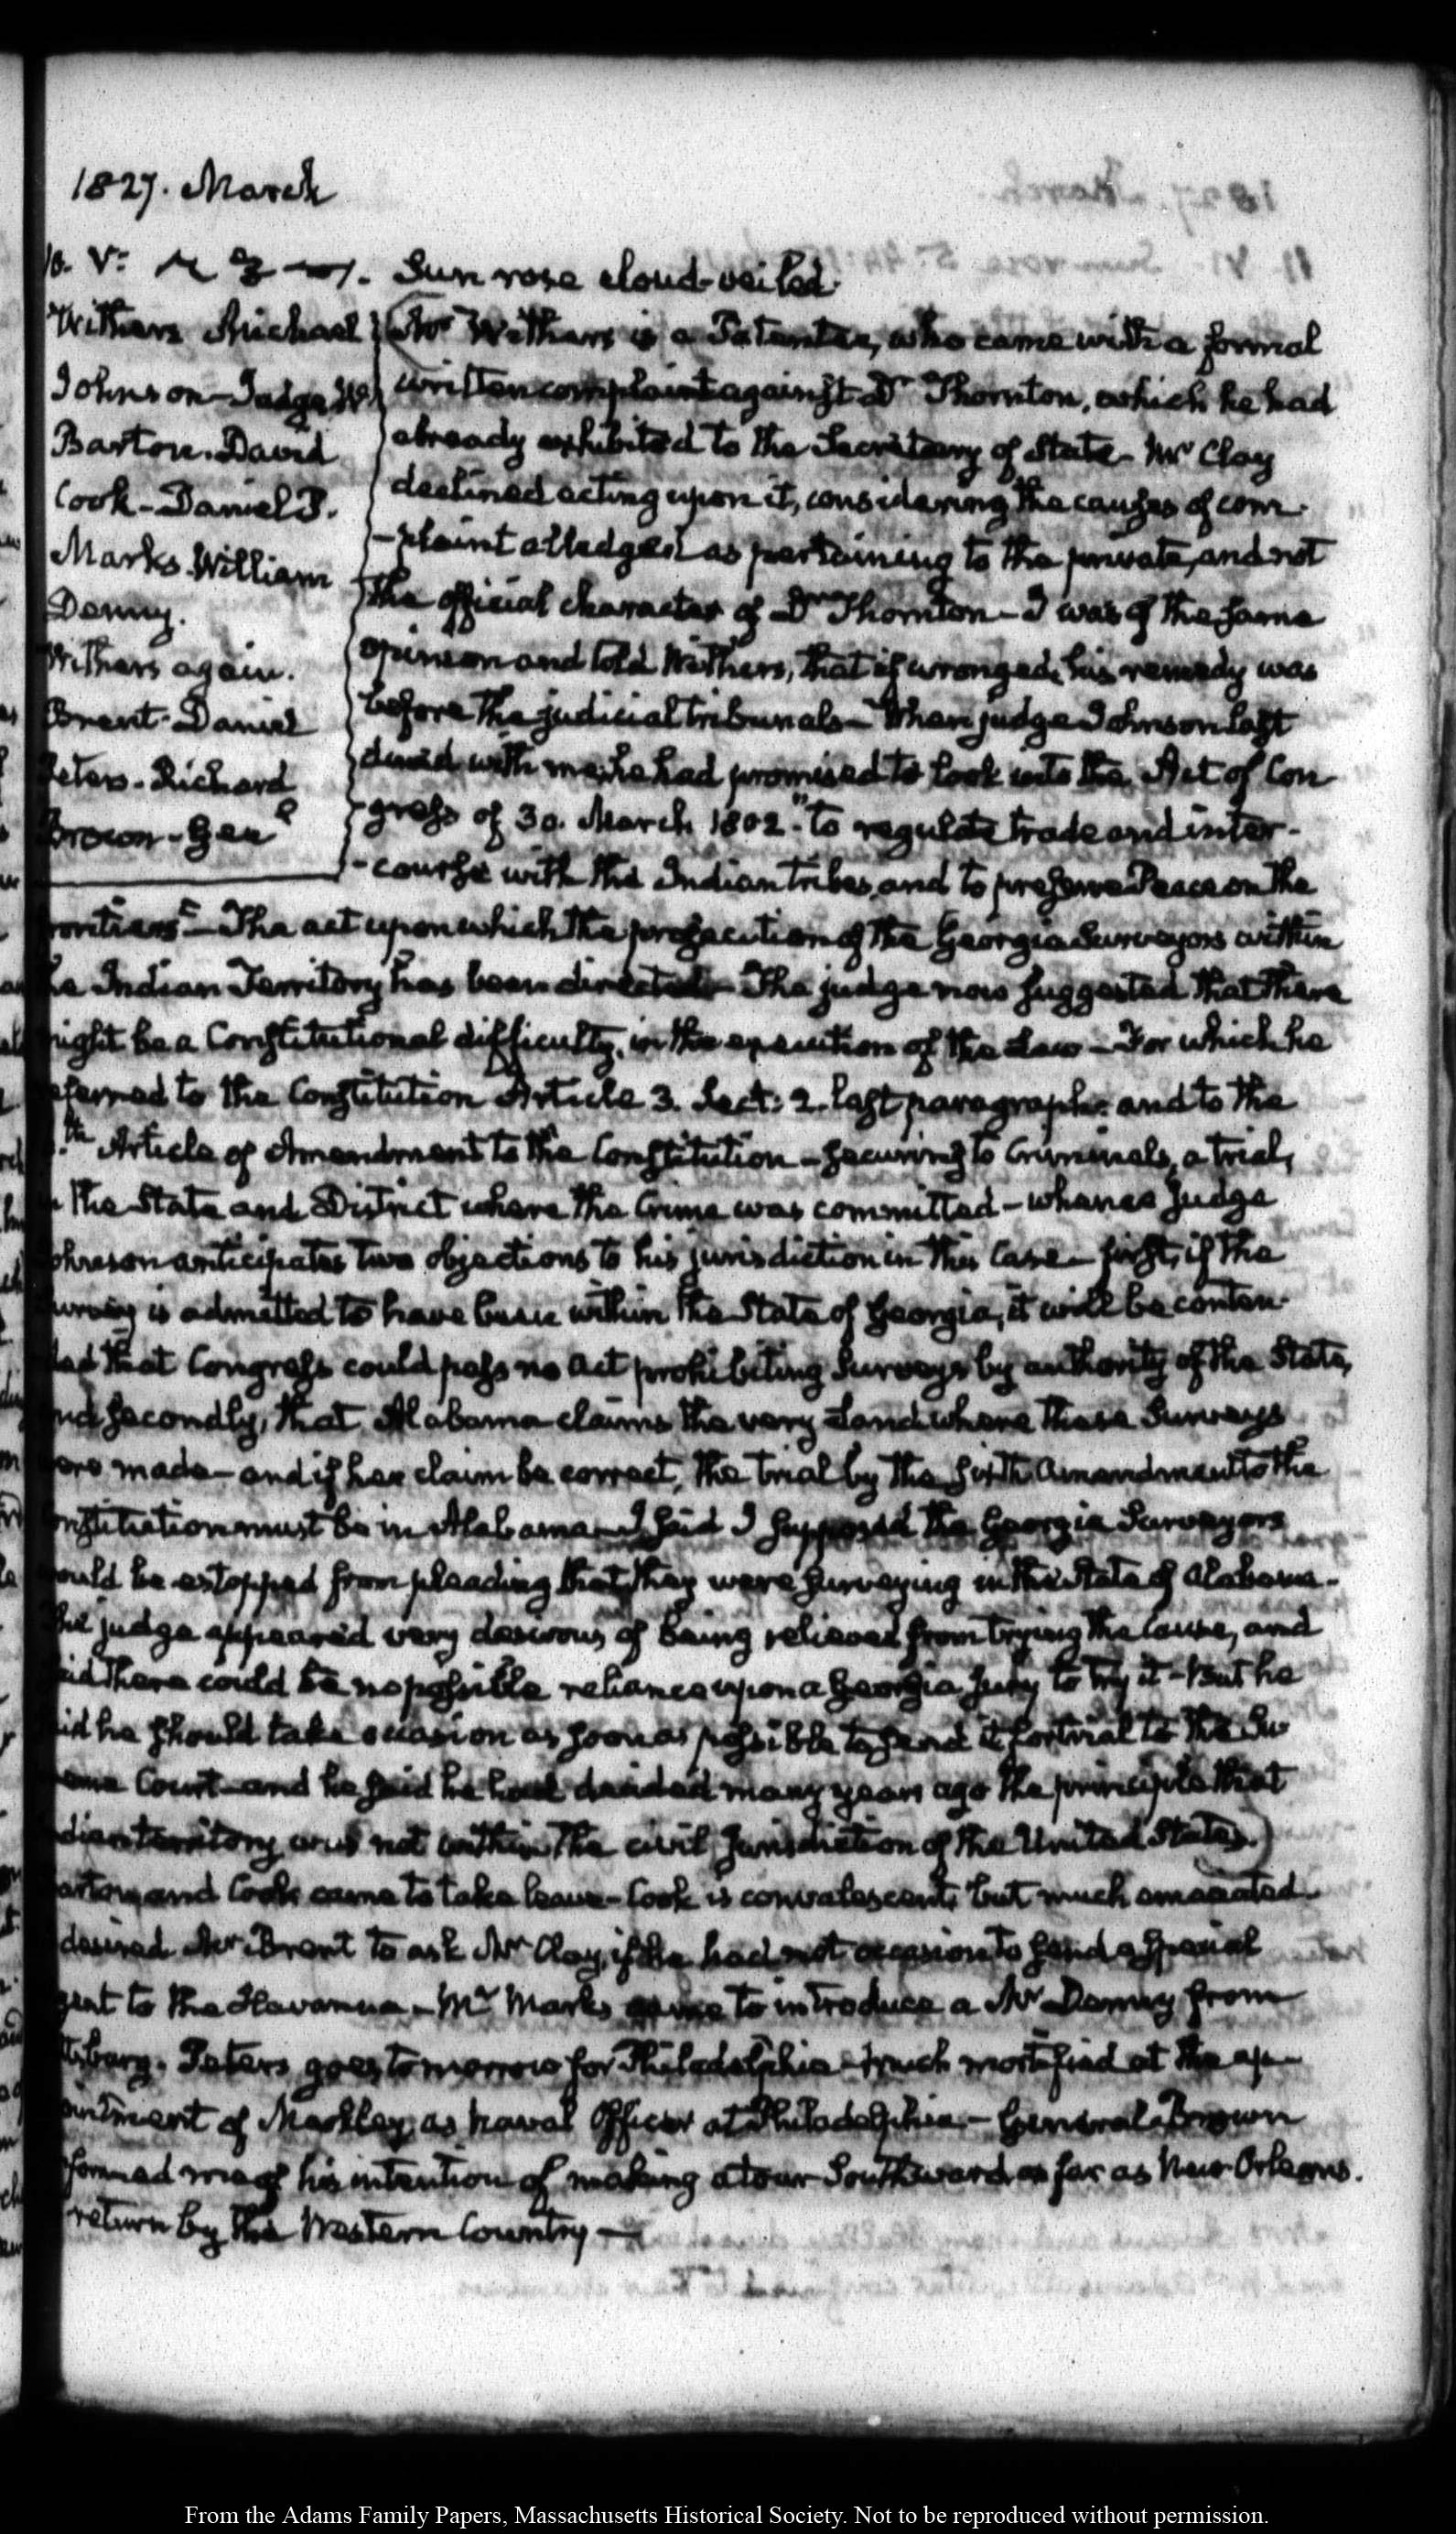 1827. March
10. V: Sun rose cloud-veiled.
Withers Michael
Johnson-Judge Wm
Barton. David
Cook-Daniel P.
Marks. William
Denny.
Withers again.
Brent-Daniel
Peters-Richard
Brown-Genl
Mr Withers is a Patentee, who came with a formal
written complaint against Dr Thornton, which he had
already exhibited to the Secretary of State- Mr Clay
declined acting upon it, considering the causes of com-
-plaint alledged as pertaining to the private, and not
the official character of Dr Thornton- I was of the same
opinion and told Withers, that if wronged, his remedy was
before the judicial tribunals- When judge Johnson last
dined with me, he had promised to look into the Act of Con
-gress of 30. March 1802. "to regulate trade and inter-
-course with the Indian tribes, and to preserve Peace on the
frontiers"- The act upon which the prosecution of the Georgia Surveyors within
the Indian Territory has been directed- The judge now suggested that there
might be a Constitutional difficulty, in the execution of the Law- For which he
referred to the Constitution Article 3. Sect: 2. last paragraph. and to the
th Article of Amendment to the Constitution- securing to Criminals, a trial,
in the State and District where the Crime was committed- whence Judge
Johnson anticipates two objections to his jurisdiction in this Case- first, if the
survey is admitted to have been within the State of Georgia, it will be conten-
ded that Congress could pass no act prohibiting Surveys by authority of the State,
and secondly, that Alabama claims the very Land where these Surveys
were made- and if her claim be correct, the trial by the sixth amendment to the
Constitution must be in Alabama- I said I supposed the Georgia Surveyors
would be estopped from pleading that they were surveying in the State of Alabama-
The judge appeared very desirous of being relieved from trying the Cause, and
said there could be no possible reliance upon a Georgia Jury to try it- But he
said he should take occasion as soon as possible to send it for trial to the Su
preme Court- and he said he had decided many years ago the principle that
Indian territory was not within the civil Jurisdiction of the United States.)
Barton and Cook came to take leave- Cook is convalescent, but much emaciated.
desired Mr Brent to ask Mr Clay, if he had not occasion to send a special
agent to the Havanna- Mr Marks came to introduce a Mr Denny from
Pittsburg. Peters goes to morrow for Philadelphia- much mortified at the ap-
pointment of Markley, as Naval Officer at Philadelphia- General Brown
informed me of his intention of making a tour Southward as far as New-Orleans.
return by the Western Country-
From the Adams Family Papers, Massachusetts Historical Society. Not to be reproduced without permission.